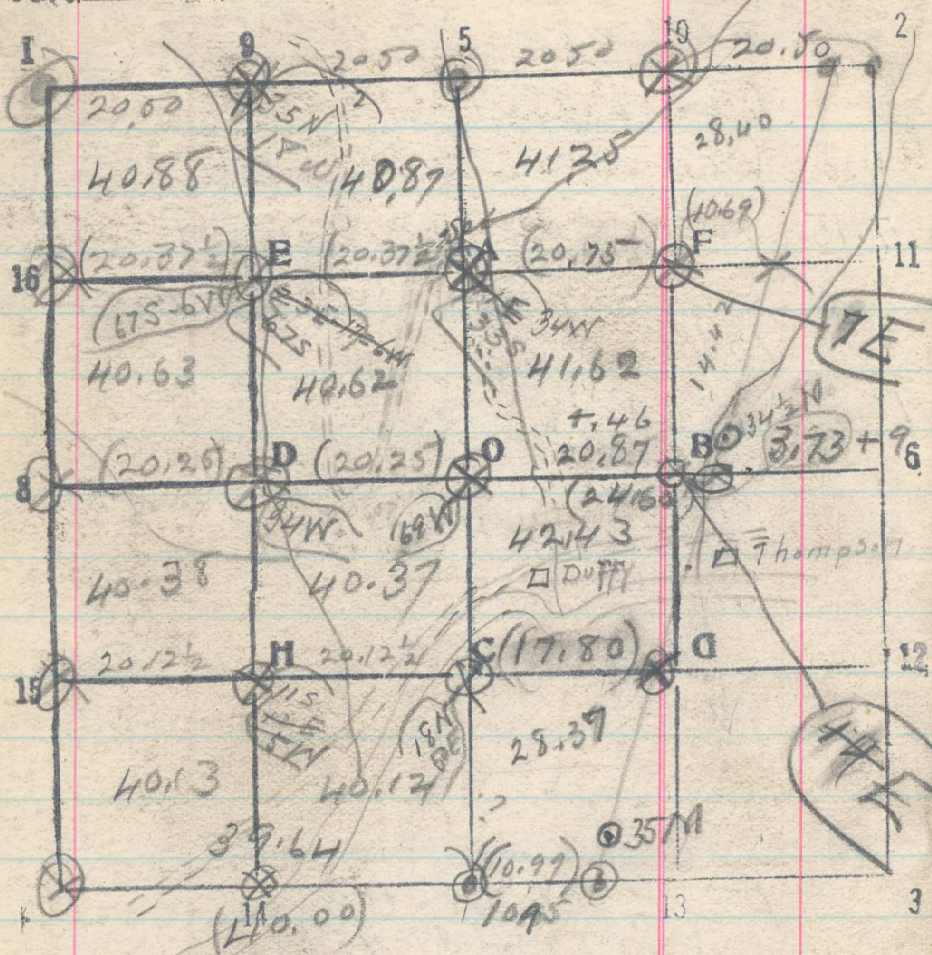 I 9 5 10 2
20.50 20.50 20.50
20.50
55N
28,40
40.88 40,87 41.25
(10.69)
16 (20.37½) E (20.37½) A (20,75) F 11
(67S-6W) 67S 33S 34W 14.42 7E
40.63 40.62 41,62
+.46 34½N
8 (20,25) D (20.25) O 20,87 B 3.73 + 9 6
34W 169W (24,60)
42,43
40.38 40.37 □ Duffy □ Thompson
15 20.12½ H 20.12½ C (17.80) G 12
18N
28.37
40.13 40.12 4E
?
39.64 35N
(10.97)
14 13 3
(40.00) 10.95